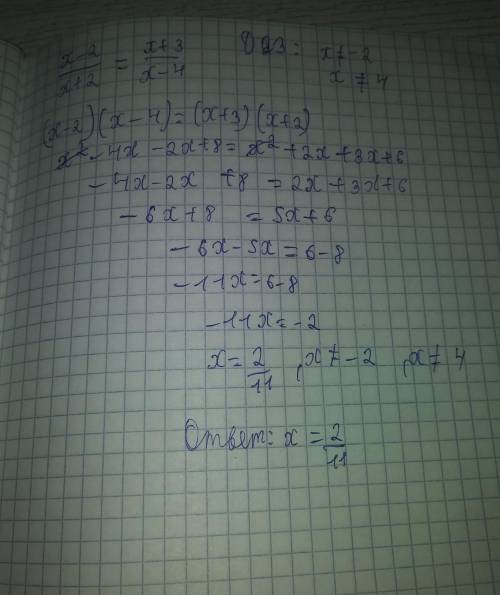 x-2/x+2 = x+3/x-4 ОДЗ: x≠-2
x≠4
(x-2)(x-4)=(x+3)(x+2)
x²-4x-2x+8=x²+2x+3x+6
-4x-2x+8=2x+3x+6
-6x+8=5x+6
-6x-5x=6-8
-11x=6-8
-11x=-2
x=2/11, x≠-2, x≠4
Ответ: x=2/11